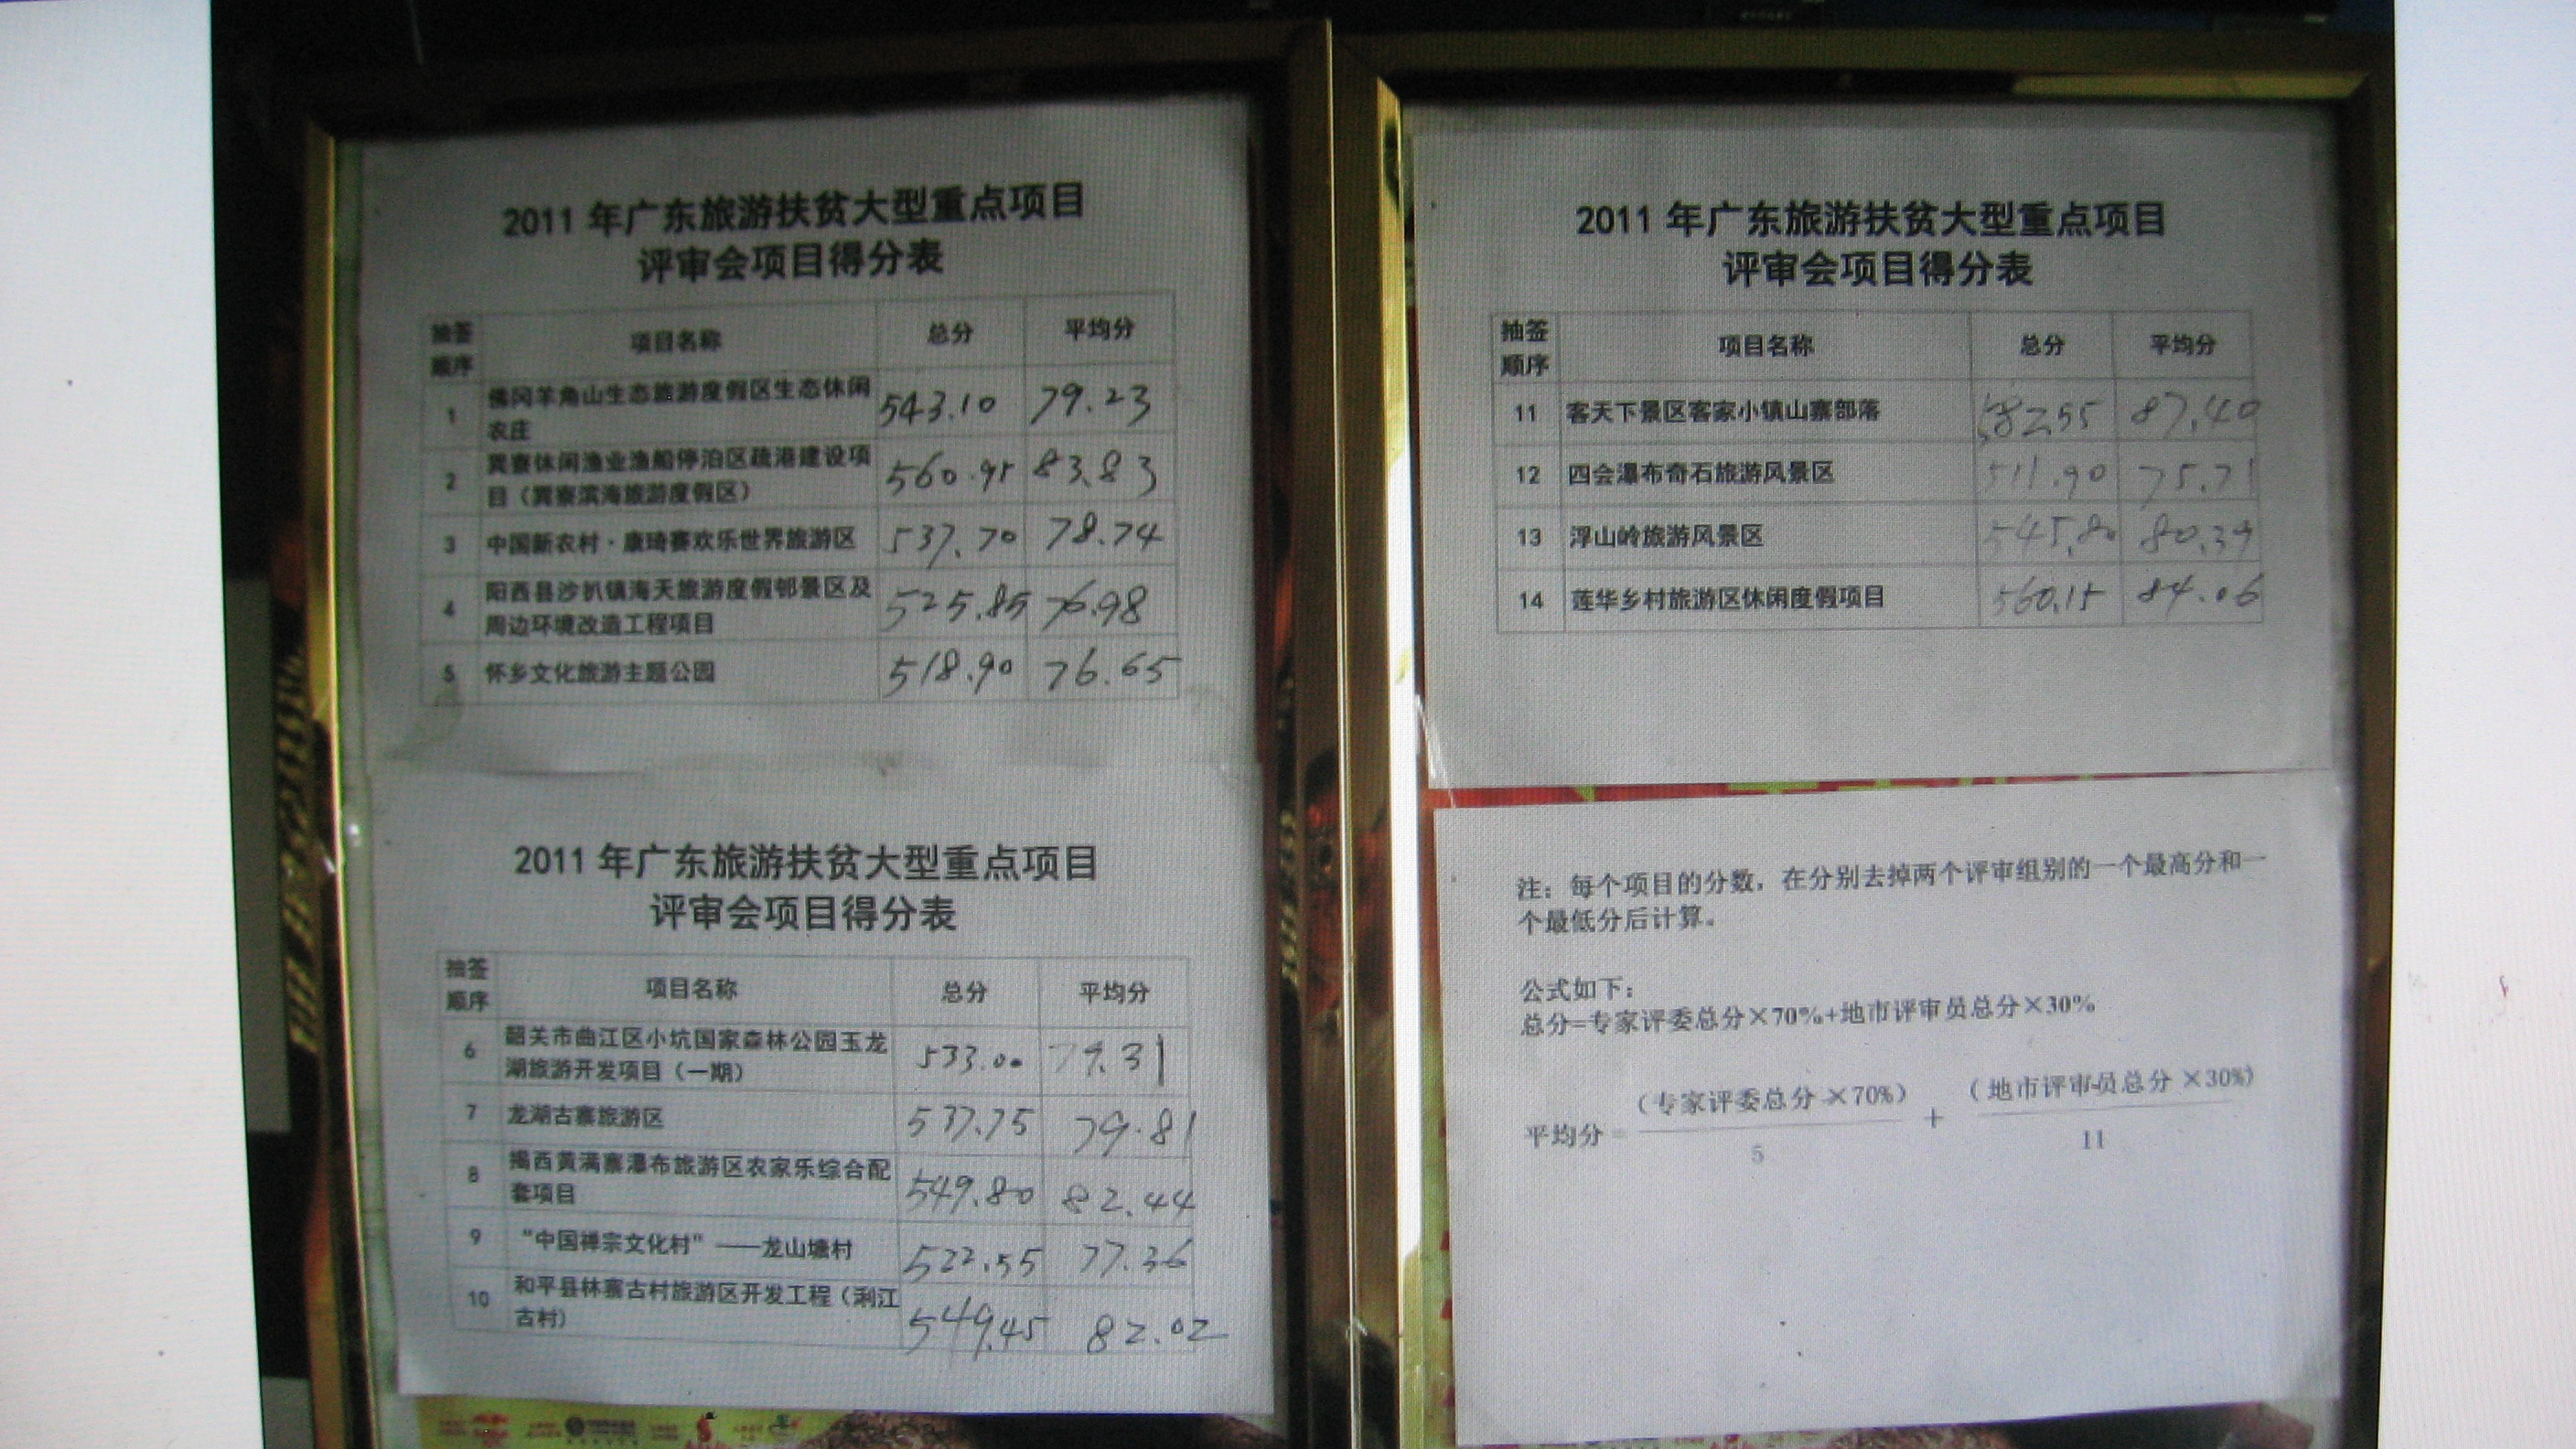 2011 年广东旅游扶贫大型重点项目
评审会项目得分表
抽签顺序 项目名称 总分 平均分
1 佛冈羊角山生态旅游度假区生态休闲农庄 543.10 79.23
2 巽寮休闲渔业渔船停泊区疏港建设项目（巽寮滨海旅游度假区） 560.95 83.83
3 中国新农村·康琦赛欢乐世界旅游区 537.70 78.74
4 阳西县沙扒镇海天旅游度假邨景区及周边环境改造工程项目 525.85 76.98
5 怀乡文化旅游主题公园 518.90 76.65
2011 年广东旅游扶贫大型重点项目
评审会项目得分表
抽签顺序 项目名称 总分 平均分
6 韶关市曲江区小坑国家森林公园玉龙湖旅游开发项目（一期） 533.00 79.31
7 龙湖古寨旅游区 537.75 79.81
8 揭西黄满寨瀑布旅游区农家乐综合配套项目 549.80 82.44
9 “中国禅宗文化村”——龙山塘村 522.55 77.36
10 和平县林寨古村旅游区开发工程（浰江古村） 549.45 82.02
2011 年广东旅游扶贫大型重点项目
评审会项目得分表
抽签顺序 项目名称 总分 平均分
11 客天下景区客家小镇山寨部落 582.55 87.40
12 四会瀑布奇石旅游风景区 511.90 75.71
13 浮山岭旅游风景区 545.80 80.39
14 莲华乡村旅游区休闲度假项目 560.15 84.06
注：每个项目的分数，在分别去掉两个评审组别的一个最高分和一
个最低分后计算。
公式如下：
总分=专家评委总分×70%+地市评审员总分×30%
平均分= （专家评委总分×70%） / 5 + （地市评审员总分×30%） / 11